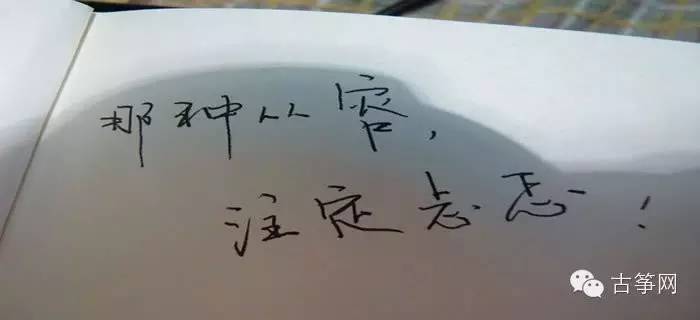 那种从容，
注定忐忑！
古筝网